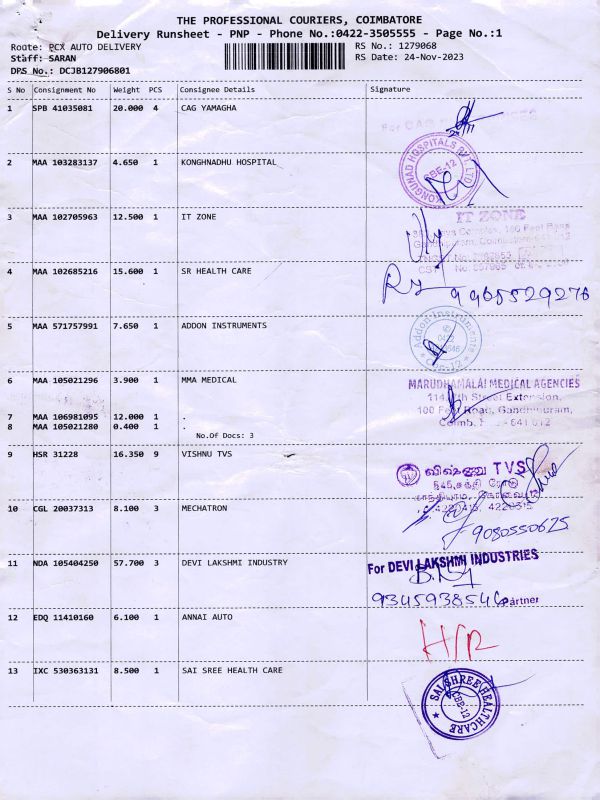 THE PROFESSIONAL COURIERS, COIMBATORE
Delivery Runsheet - PNP - Phone No.:0422-3505555 - Page No.:1
Route: PCX AUTO DELIVERY RS No.: 1279068
Staff: SARAN RS Date: 24-Nov-2023
DPS No.: DCJB127906801
S No Consignment No Weight PCS Consignee Details Signature
1 SPB 41035081 20.000 4 CAG YAMAGHA
2 MAA 103283137 4.650 1 KONGHNADHU HOSPITAL
KONGUNAD HOSPITALS PVT. LTD
CBE-12
3 MAA 102705963 12.500 1 IT ZONE
IT ZONE
4 MAA 102685216 15.600 1 SR HEALTH CARE
9965529276
5 MAA 571757991 7.650 1 ADDON INSTRUMENTS
Addon Instruments
6 MAA 105021296 3.900 1 MMA MEDICAL
MARUDHAMALAI MEDICAL AGENCIES
Street Extension,
100 Feet Road, Gandhipuram,
641 012
7 MAA 106981095 12.000 1 .
8 MAA 105021280 0.400 1 .
No.Of Docs: 3
9 HSR 31228 16.350 9 VISHNU TVS
விஷ்ணு TVS
10 CGL 20037313 8.100 3 MECHATRON
9080550625
11 NDA 105404250 57.700 3 DEVI LAKSHMI INDUSTRY
For DEVI LAKSHMI INDUSTRIES
9345938546 Partner
12 EDQ 11410160 6.100 1 ANNAI AUTO
13 IXC 530363131 8.500 1 SAI SREE HEALTH CARE
SAI SHREE HEALTHCARE
CBE-12